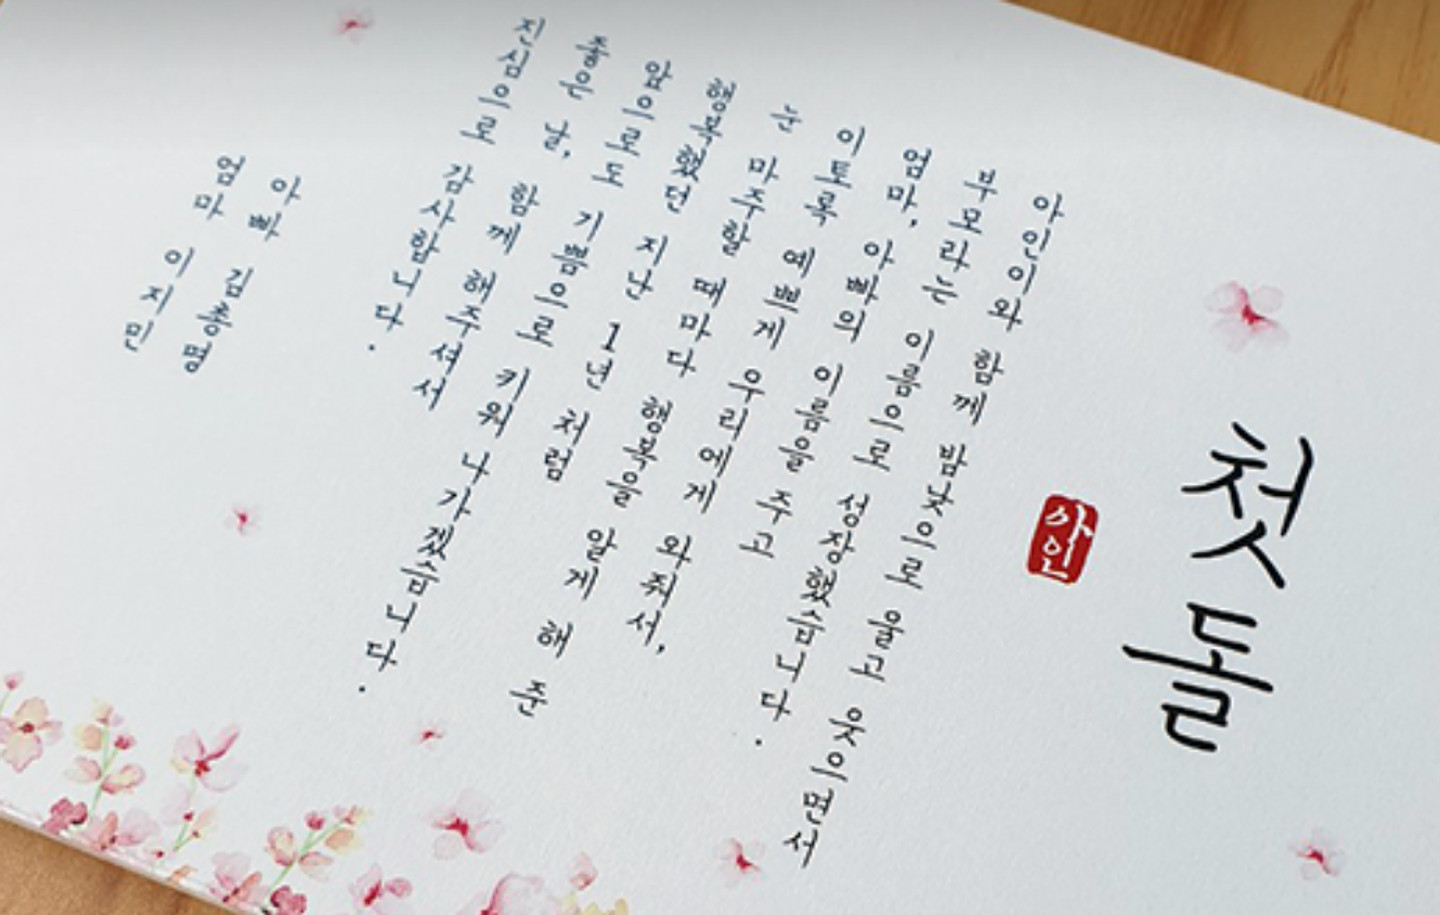 첫돌
아인
아인이와 함께 밤낮으로 울고 웃으면서
부모라는 이름으로 성장했습니다.
엄마, 아빠의 이름을 주고
이토록 예쁘게 우리에게 와줘서,
눈 마주할 때마다 행복을 알게 해 준
행복했던 지난 1년 처럼
앞으로도 기쁨으로 키워 나가겠습니다.
좋은 날, 함께 해주셔서
진심으로 감사합니다.
아빠 김종명
엄마 이지민